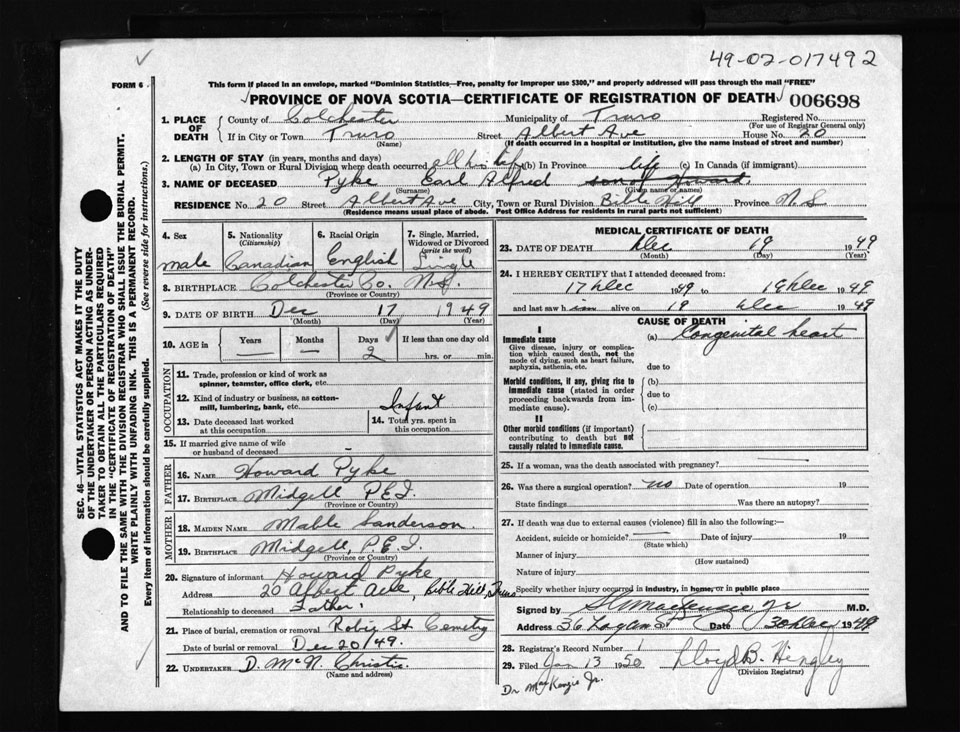 49-02-017492
FORM 6
This form if placed in an envelope, marked "Dominion Statistics—Free, penalty for improper use $300," and properly addressed will pass through the mail "FREE"
PROVINCE OF NOVA SCOTIA—CERTIFICATE OF REGISTRATION OF DEATH 006698
1. PLACE OF DEATH
County of Colchester Municipality of Truro Registered No.
(For use of Registrar General only)
If in City or Town Truro Street Albert Ave House No. 20
(Name) (If death occurred in a hospital or institution, give the name instead of street and number)
2. LENGTH OF STAY (in years, months and days)
(a) In City, Town or Rural Division where death occurred all his life (b) In Province life (c) In Canada (if immigrant)
3. NAME OF DECEASED Pyke Earl Alfred son of Howard.
(Surname) (Given name or names)
RESIDENCE No. 20 Street Albert Ave City, Town or Rural Division Bible Hill Province N.S
(Residence means usual place of abode. Post Office Address for residents in rural parts not sufficient)
4. Sex 5. Nationality (Citizenship) 6. Racial Origin 7. Single, Married, Widowed or Divorced (write the word)
male Canadian English Single
8. BIRTHPLACE Colchester Co. N.S.
(Province or Country)
9. DATE OF BIRTH Dec 17 1949
(Month) (Day) (Year)
10. AGE in Years Months Days If less than one day old
— — 2 hrs. or min.
OCCUPATION
11. Trade, profession or kind of work as spinner, teamster, office clerk, etc.
12. Kind of industry or business, as cotton-mill, lumbering, bank, etc. Infant
13. Date deceased last worked at this occupation 14. Total yrs. spent in this occupation
15. If married give name of wife or husband of deceased —
FATHER
16. NAME Howard Pyke
17. BIRTHPLACE Midgell P.E.I.
MOTHER
18. MAIDEN NAME Mable Sanderson
19. BIRTHPLACE Midgell, P.E.I.
(Province or Country)
20. Signature of informant Howard Pyke
Address 20 Albert Ave, Bible Hill, Truro
Relationship to deceased Father.
21. Place of burial, cremation or removal Robie St Cemetry
Date of burial or removal Dec 20/49.
22. UNDERTAKER D. McN. Christie.
(Name and address)
MEDICAL CERTIFICATE OF DEATH
23. DATE OF DEATH Dec 19 1949
(Month) (Day) (Year)
24. I HEREBY CERTIFY that I attended deceased from:
17 Dec 1949 to 19 Dec 1949
and last saw him alive on 19 Dec 1949
CAUSE OF DEATH
I
Immediate cause (a) Congenital heart
Give disease, injury or complication which caused death, not the mode of dying, such as heart failure, asphyxia, asthenia, etc.
due to
Morbid conditions, if any, giving rise to immediate cause (stated in order proceeding backwards from immediate cause).
(b)
due to
(c)
II
Other morbid conditions (if important) contributing to death but not causally related to immediate cause.
25. If a woman, was the death associated with pregnancy?
26. Was there a surgical operation? no Date of operation 19
State findings Was there an autopsy?
27. If death was due to external causes (violence) fill in also the following:—
Accident, suicide or homicide? Date of injury 19
(State which)
Manner of injury
(How sustained)
Nature of injury
Specify whether injury occurred in industry, in home, or in public place
Signed by MacKenzie Jr M.D.
Address 36 Logan St Date 30 Dec 1949
28. Registrar's Record Number 1
29. Filed Jan 13 1950 Lloyd B. Hingley
(Division Registrar)
Dr MacKenzie Jr.
SEC. 46—VITAL STATISTICS ACT MAKES IT THE DUTY
OF THE UNDERTAKER OR PERSON ACTING AS UNDER-
TAKER TO OBTAIN ALL THE PARTICULARS REQUIRED
IN THE "CERTIFICATE OF REGISTRATION OF DEATH"
AND TO FILE THE SAME WITH THE DIVISION REGISTRAR WHO SHALL ISSUE THE BURIAL PERMIT.
WRITE PLAINLY WITH UNFADING INK. THIS IS A PERMANENT RECORD.
Every item of information should be carefully supplied. (See reverse side for instructions.)